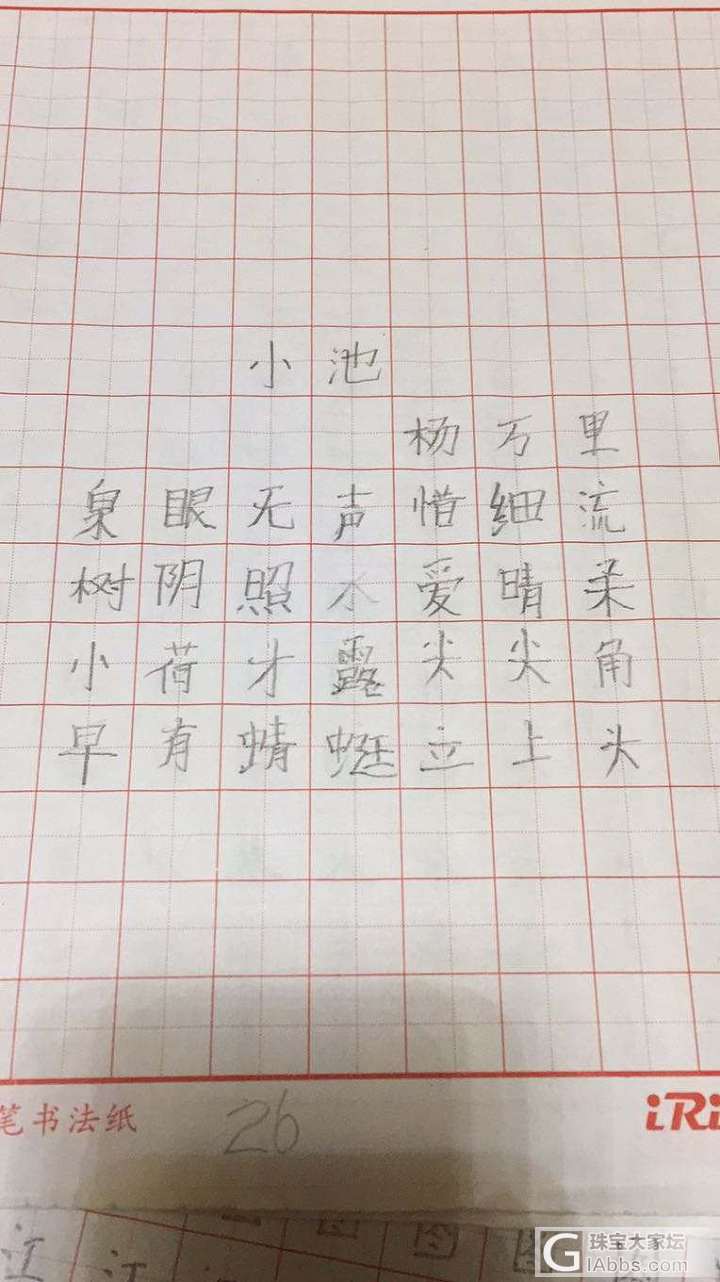 小池
杨万里
泉眼无声惜细流
树阴照水爱晴柔
小荷才露尖尖角
早有蜻蜓立上头
笔书法纸
iRi
26
江江
图图图
珠宝大家坛
GIAbbs.com